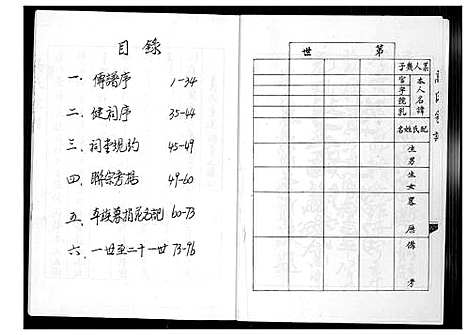 目錄
一. 傳譜序 1-34
二. 健祠序 35-44
三. 祠堂規約 45-49
四. 聯宗考据 49-60
五. 60-73
六. 一世至二十一世 73-96
第 世
某人幾子
本人名諱
官 字 號 乳
配氏姓名
生男
生女
畧歷
備考